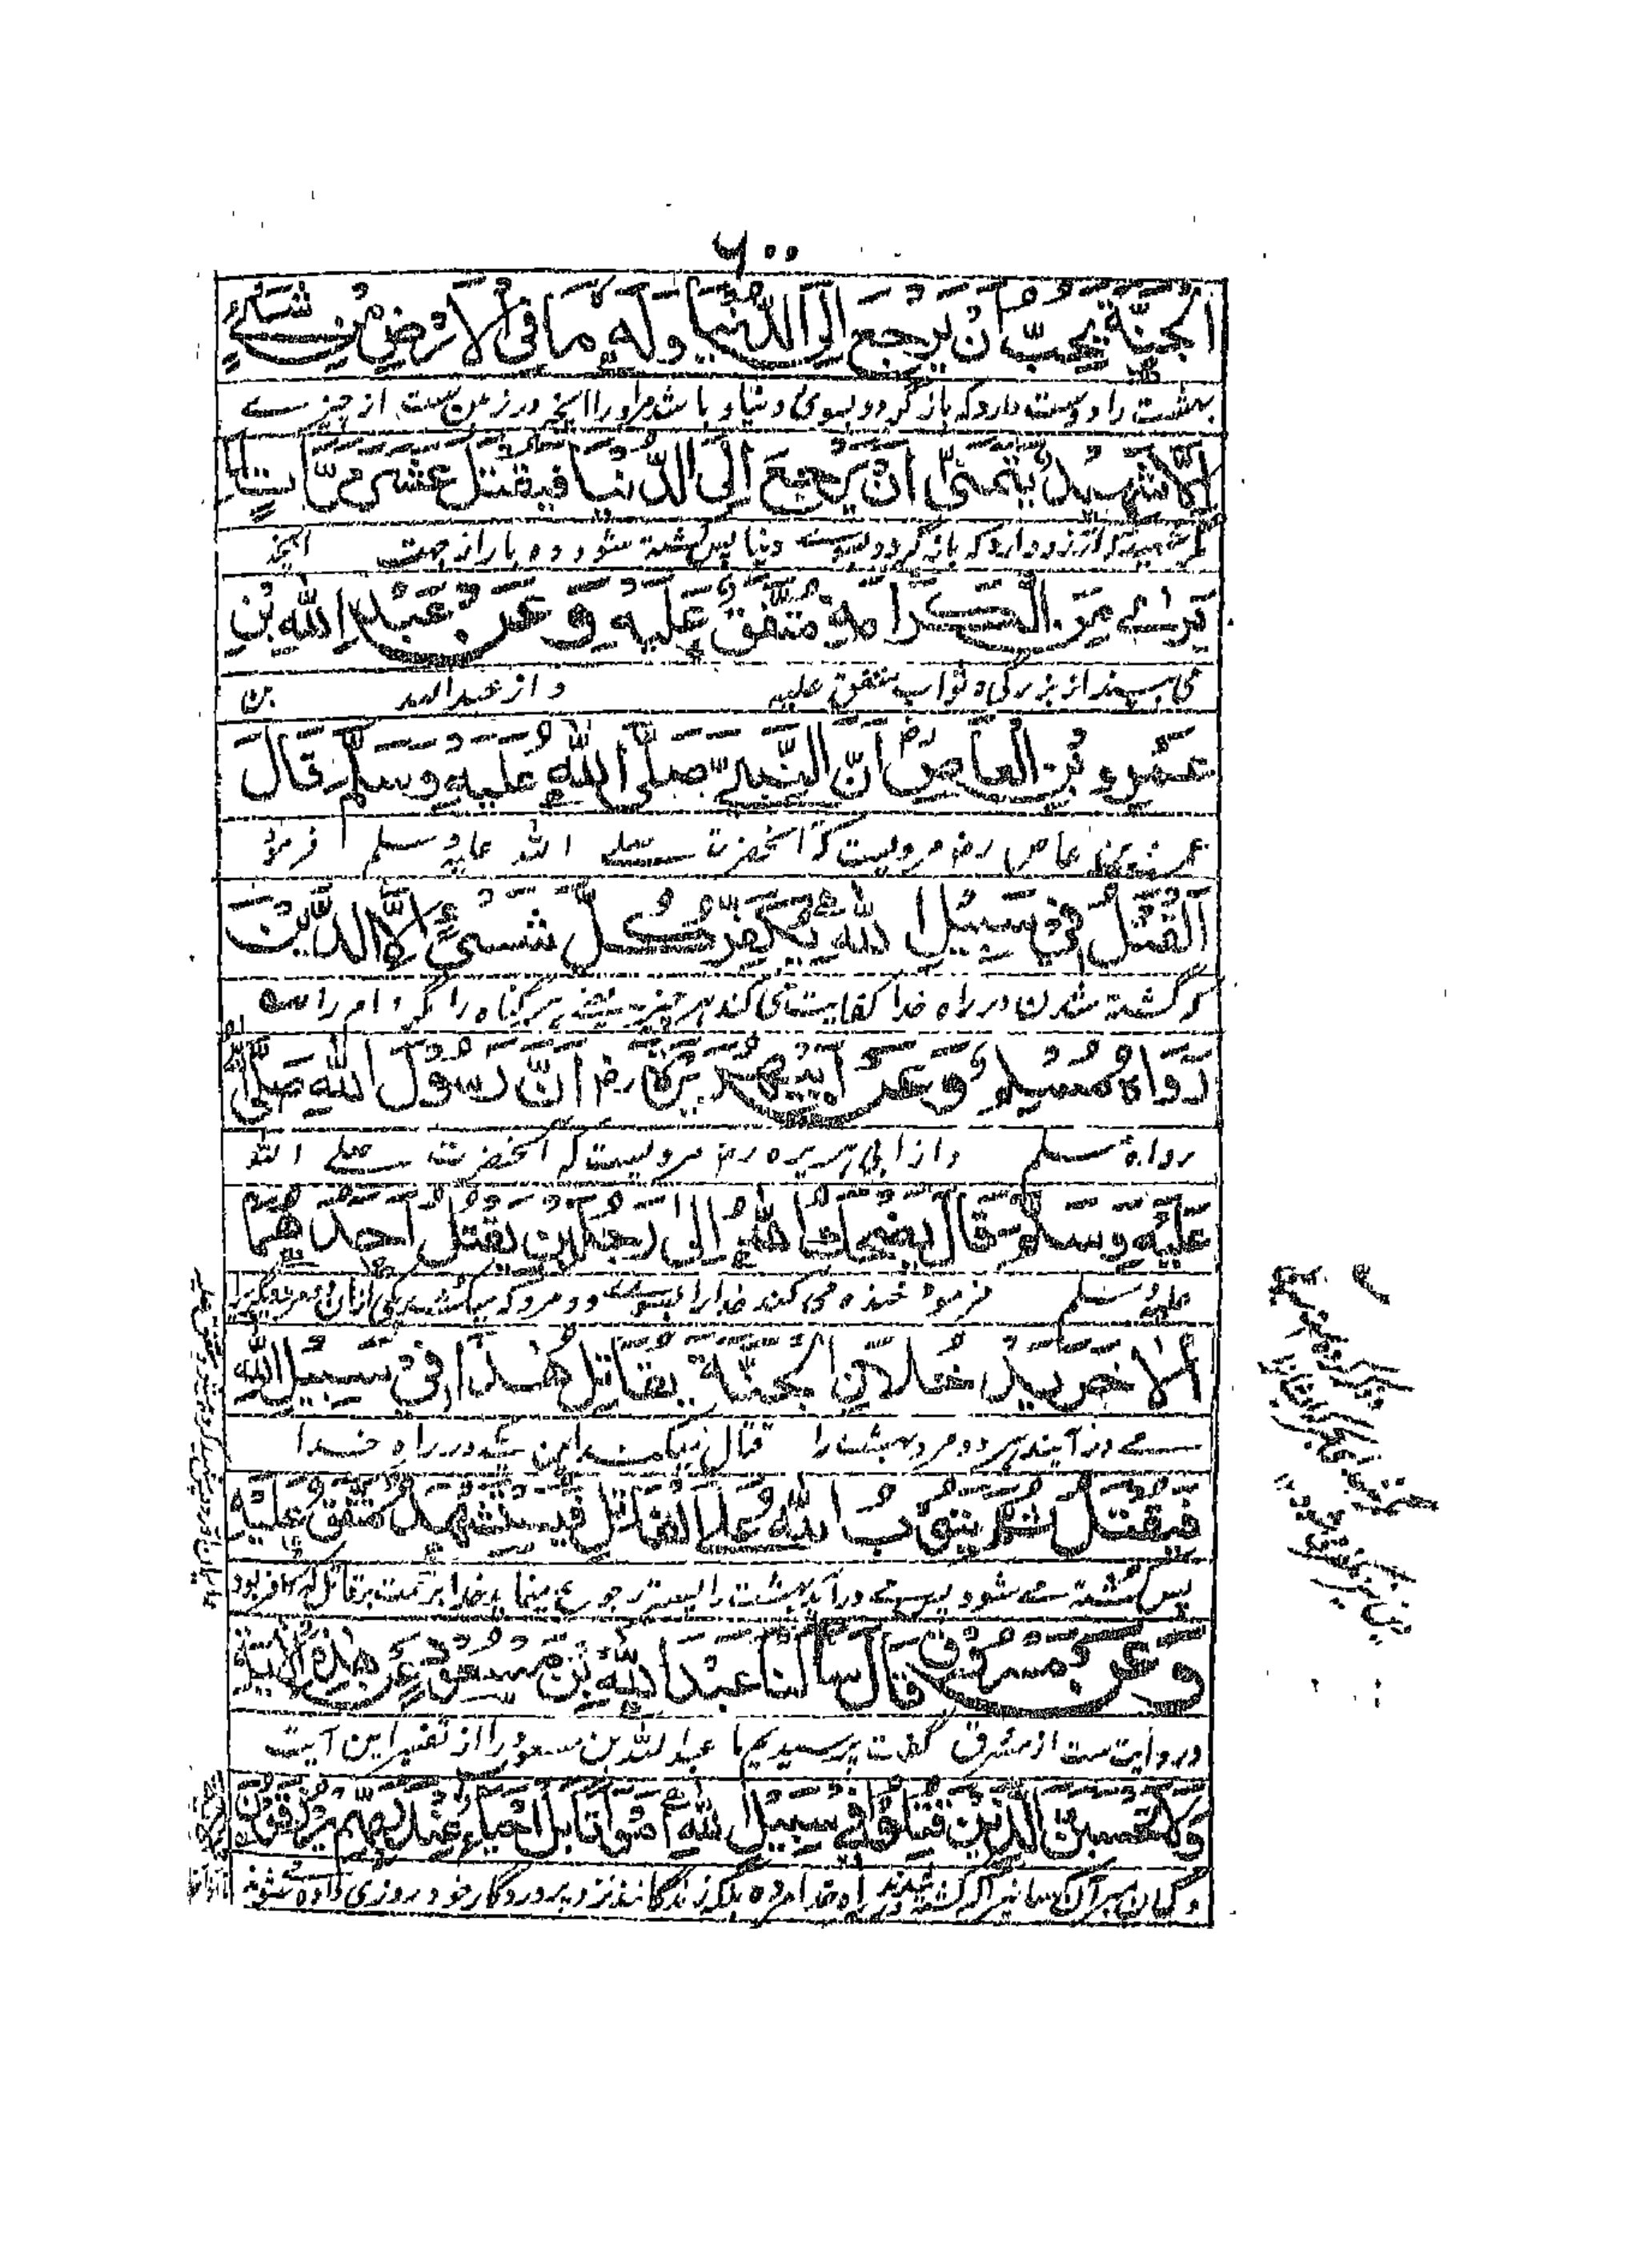 ٦٠٠
الْجَنَّةَ يُحِبُّ أَنْ يَرْجِعَ إِلَى الدُّنْيَا وَلَهُ مَا فِي الْأَرْضِ مِنْ شَيْءٍ
بهشت را دوست دارد که باز گردد بسوی دنیا و باشد مر او را آنچه در زمین ست از چیزے
إِلَّا الشَّهِيدُ يَتَمَنَّى أَنْ يَرْجِعَ إِلَى الدُّنْيَا فَيُقْتَلَ عَشْرَ مَرَّاتٍ لِمَا
مگر شهید که آرزو دارد که باز گردد بسوے دنیا پس کشته شود ده بار از جهت آنچه
يَرٰى مِنَ الْكَرَامَةِ مُتَّفَقٌ عَلَيْهِ وَعَنْ عَبْدِ اللّٰهِ بْنِ
می بیند از بزرگی و ثواب متفق علیه و از عبد الله بن
عَمْرِو بْنِ الْعَاصِ رض أَنَّ النَّبِيَّ صَلَّى اللّٰهُ عَلَيْهِ وَسَلَّمَ قَالَ
عمرو بن عاص رض مرویست که آنحضرت صلے الله علیه وسلم فرمود
الْقَتْلُ فِي سَبِيلِ اللّٰهِ يُكَفِّرُ كُلَّ شَيْءٍ إِلَّا الدَّيْنَ
که کشته شدن در راه خدا کفایت می کند هر چیز یعنے هر گناه را مگر وام را
رَوَاهُ مُسْلِمٌ وَعَنْ أَبِي هُرَيْرَةَ رض أَنَّ رَسُولَ اللّٰهِ صَلَّى اللّٰهُ
رواه مسلم و از ابی هریره رض مرویست که آنحضرت صلے الله
عَلَيْهِ وَسَلَّمَ قَالَ يَضْحَكُ اللّٰهُ إِلَى رَجُلَيْنِ يَقْتُلُ أَحَدُهُمَا
علیه وسلم فرمود خنده می کند خدا را بسوے دو مرد که میکشد یکی ازان دو مر دیگر را
الْاٰخَرَ يَدْخُلَانِ الْجَنَّةَ يُقَاتِلُ هٰذَا فِي سَبِيلِ اللّٰهِ
مے در آیند هر دو مرد بهشت را قتال میکند این یکے در راه خدا
فَيُقْتَلُ ثُمَّ يَتُوبُ اللّٰهُ عَلَى الْقَاتِلِ فَيُسْتَشْهَدُ مُتَّفَقٌ عَلَيْهِ
پس کشته مے شود پس مے درآید بهشت را پستر رجوع مینماید خدا برحمت بر قاتل که کافر بود
وَعَنْ مَسْرُوقٍ قَالَ سَأَلْنَا عَبْدَ اللّٰهِ بْنَ مَسْعُودٍ عَنْ هٰذِهِ الْاٰيَةِ
و روایت ست از مسروق گفت پرسیدیم ما عبد الله بن مسعود را از تفسیر این آیت
وَلَا تَحْسَبَنَّ الَّذِينَ قُتِلُوا فِي سَبِيلِ اللّٰهِ أَمْوَاتًا بَلْ أَحْيَاءٌ عِنْدَ رَبِّهِمْ يُرْزَقُونَ
و گمان مبر آن کسانیرا که کشته شدند در راه خدا مرده بلکه زندگانند نزد پروردگار خود روزی داده مے شوند